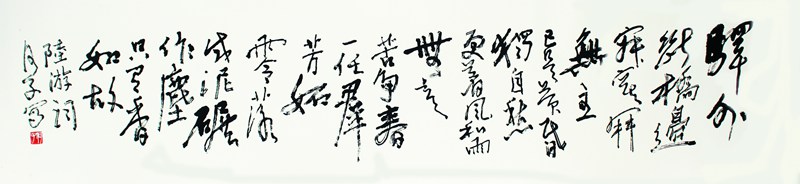 驛外
斷橋邊
寂寞開
無主
已是黃昏
獨自愁
更着風和雨
無意
苦爭春
一任羣
芳妬
零落
成泥碾
作塵
只有香
如故
陸游詞